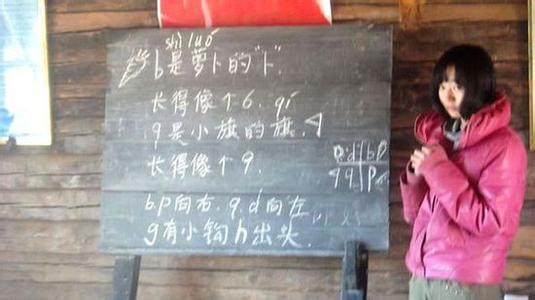 shì luó
b是萝卜的"卜".
长得像个6. qí
q是小旗的旗.
长得像个9.
b.p向右. q.d向左
g有小钩h出头.
p d b p
q q p